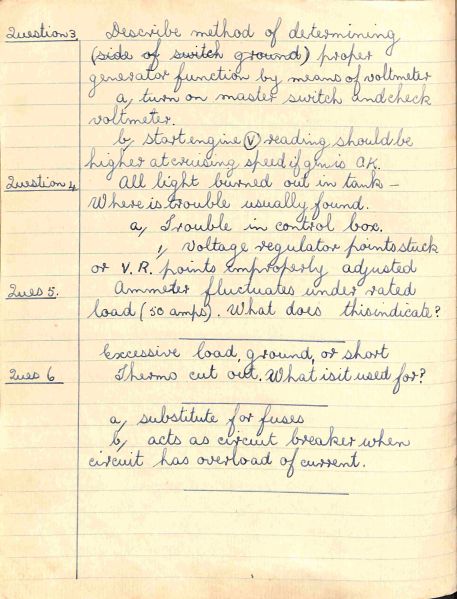 Question 3 Describe method of determining
(side of switch ground) proper
generator function by means of voltmeter
a, turn on master switch and check
voltmeter.
b, start engine (V) reading should be
higher at cruising speed if gen is O.K.
Question 4 All light burned out in tank –
Where is trouble usually found.
a, Trouble in control box.
1, voltage regulator points stuck
or V.R. points improperly adjusted
Ques 5. Ammeter fluctuates under rated
load (50 amps). What does this indicate?
Excessive load, ground, or short
Ques 6 Thermo cut out. What is it used for?
a, substitute for fuses
b, acts as circuit breaker when
circuit has overload of current.